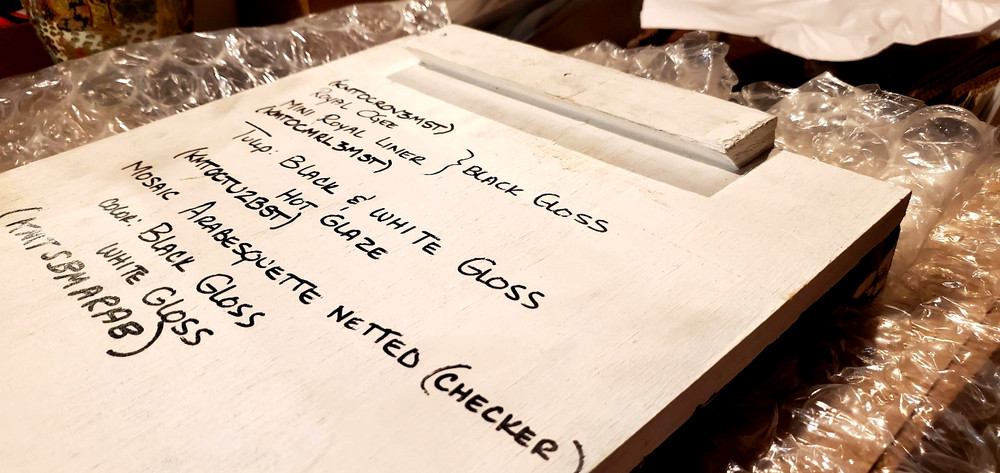 ROYAL OGEE
(KNTOCROV3MST)
MINI ROYAL LINER } BLACK GLOSS
(KNTOCMRL3MST)
TULIP: BLACK & WHITE GLOSS
HOT GLAZE
(KNTOCTU2BST)
MOSAIC ARABESQUETTE NETTED (CHECKER)
COLOR: BLACK GLOSS
WHITE GLOSS